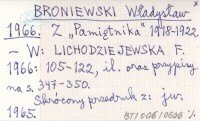 BRONIEWSKI Władysław
1966. Z „Pamiętnika" 1918-1922.
– W: LICHODZIEJEWSKA F.
1966: 105-122, il. oraz przypisy
na s. 347-350.
Skrócony przedruk z: jw.
1965.
BT/006/0608